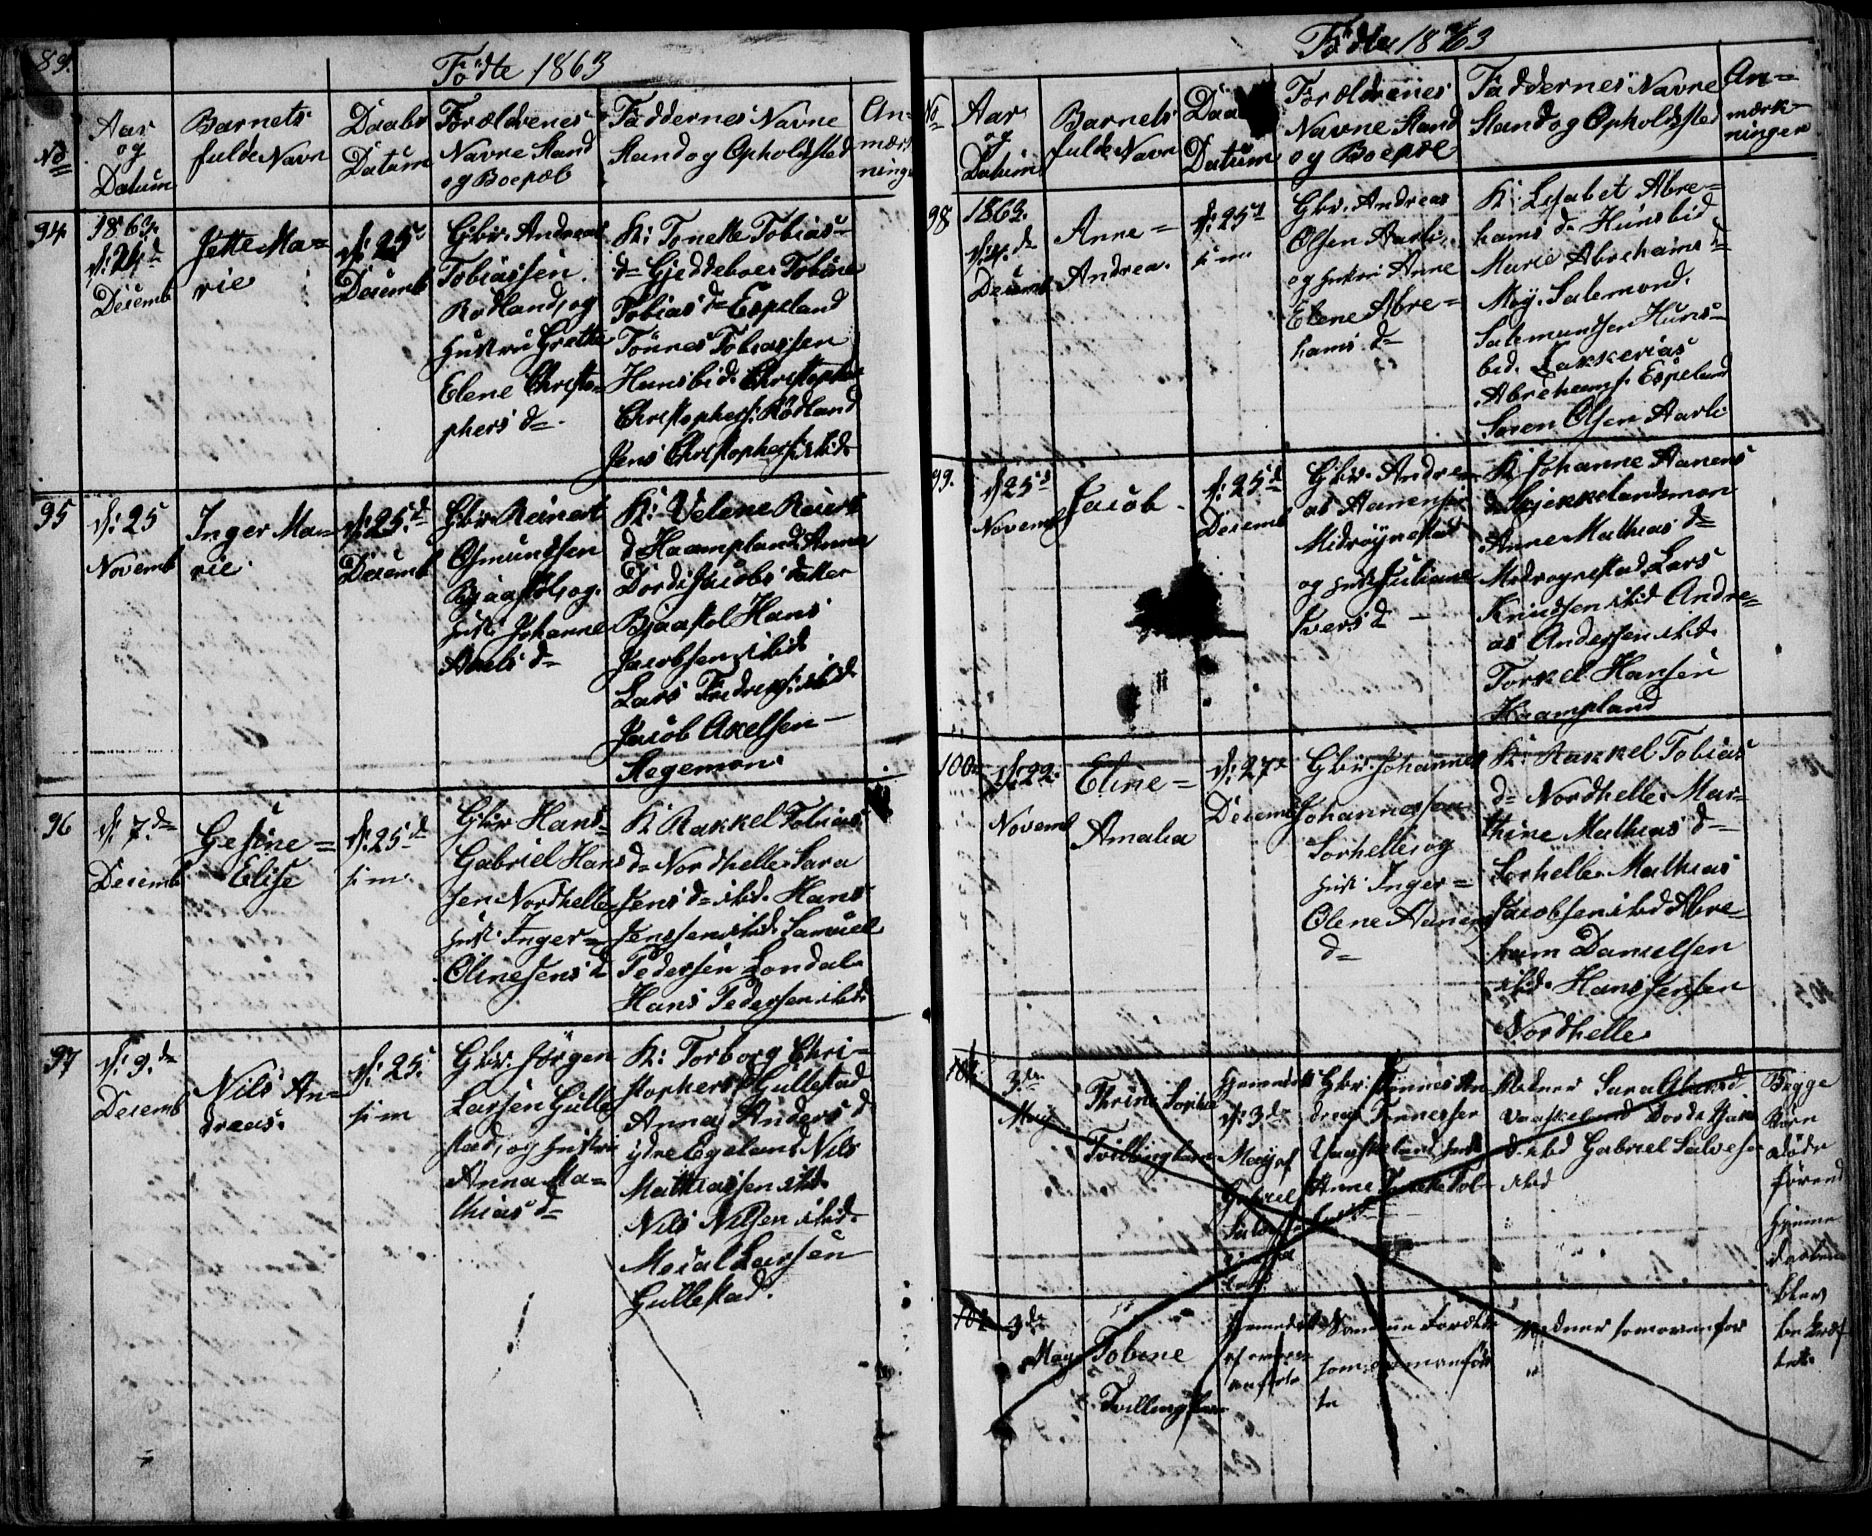 89.
Fødte 1863
No
Aar
og
Datum
Barnets
fulde Navn
Daabs
Datum
Forældrenes
Navne Stand
og Boepæl
Faddernes Navne
Stand og Opholdsted
An-
mærk
ninge
94
1863.
d: 4de
Decemb
Jette Ma=
rie
d: 25
Decemb
Gbr. Andreas
Tobiassen
Rødland, og
Hustru Grethe
Elene Christo=
phers d=
K: Tonette Tobias
d= Gjeddeboe Tobine
Tobias d= Espeland
Tønnes Tobiassen
Hunsbid. Christopher
Christophers: Rødland
Jens Christophers: ibid.
95
d: 25
Novemb
Inger Ma=
rie
d: 25d
Decemb
Gbr. Reinert
Osmundsen
Bjaastol, og
Hust: Johanne
Axels d=
K: Velene Reiers
d. Haampland Anne
Dorde Jacobs datter
Bjaastol Hans
Jacobsen ibid.
Lars Fredriks: ibid
Jacob Axelsen
Stegemon.
96
d. 7de
Decemb
Gesine =
Elise
d: 25d
s: m.
Gbr Hans
Gabriel Hans
sen Nordhelle
Hust. Inger=
Oline Jens d
K: Rakkel Tobias
d= Nordhelle. Sara
Jens d= ibid. Hans
Jenssen ibid. Samuel
Pedersen Londal.
Hans Pedersen ibid.
97
d: 9de
Decemb
Nils An=
dreas.
d: 25.
s: m
Gbr. Jørgen
Larsen Gulle
stad, og Hustru
Anna Ma=
thias d=
K: Torborg Chri=
stophers d Gullestad
Anna Anders d
ydre Egeland. Nils
Mathiassen ibid.
Nils Nilsen ibid.
Gullestad.
Fødte 1863
No
Aar
og
Datum
Barnets
fulde Navn
Datum
Forældrenes
Navne Stand
og Boepæl
Faddernes Navne
Stand og Opholdsted
An=
mærk=
ninger
98
1863.
d: 4. de
Decemb
Anne =
Andrea.
d: 25d
s: m.
Gbr. Andreas
Olsen Aarli.
og Hustru Anne
Elene Abre=
hams d=
K: Lisabet Abre=
hams d= Hunsbid
Marie Abrehams d=
Møy. Salemond.
Salemundsen Huns=
bid. Zakkerias
Abrehams: Espeland
Søren Olsen Aarli
99.
d 25d
Novemb
Jacob.
d: 25d
Decemb
Gbr. Andre=
as Aanensen
Midrøynestad
og Hust Juliane
Ivers d
K: Johanne Aanens
d. Skjekkelandsmon
Anne Mathias d=
Midrøynestad, Lars
Knudsen ibid Andre=
as Anderssen ibid.
Torkel Hansen
Haampland
100.
d: 22.
Novemb
Eline =
Amalia
d: 27
Decemb
Gbr: Johannes
Johannessen
Sørhelle, og
Hust: Inger=
Olene Aanens
d=
K: Rakkel Tobias
d= Nordhelle. Mar=
thine Mathias d=
Sørhelle. Mathias
Jacobsen ibid Abre=
ham Danielsen
ibid. Hans Jensen
Nordhelle.
101.
3de
May
Thrine Sophie
Tvilling
Hjemedøbt
d: 3de
May af
Gabriel
Gbr: Tønnes An
dreas Tønnessen
Vaaskeland
Anne
Vidner Sara
Vaaskeland Dorde
d. ibid Gabriel Salvesen
ibid
Begge
Børn
døde
førend
Hjemme
daaben
blev
bekræf
tet.
102
3de
May
Tobine
Tvilling
Hjemedøbt
Samme Forældre
som ovenfor
Vidner som ovenfor